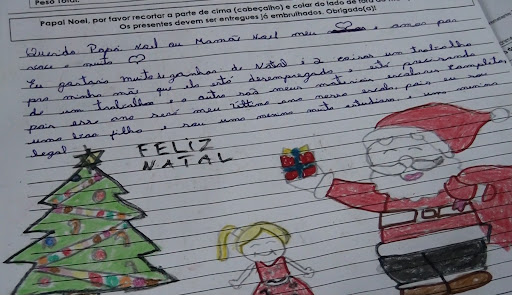 Peso Total:
Papai Noel, por favor recortar a parte de cima (cabeçalho) e colar do lado de fora do
Os presentes devem ser entregues já embrulhados. Obrigado(a)!
Querido Papai Noel ou Mamãe Noel meu amor por
voce e muito
Eu gostaria muito de ganhar de Natal é 2 coisas um trabalho
pra minha mãe que ela está desempregada e está precisando
de um trabalho e o outro são meus materiais escolares completos
pois esse ano será meu último ano nessa escola pois eu sou
uma boa filha e sou uma menina muito estudiosa e uma menina
legal
FELIZ
NATAL